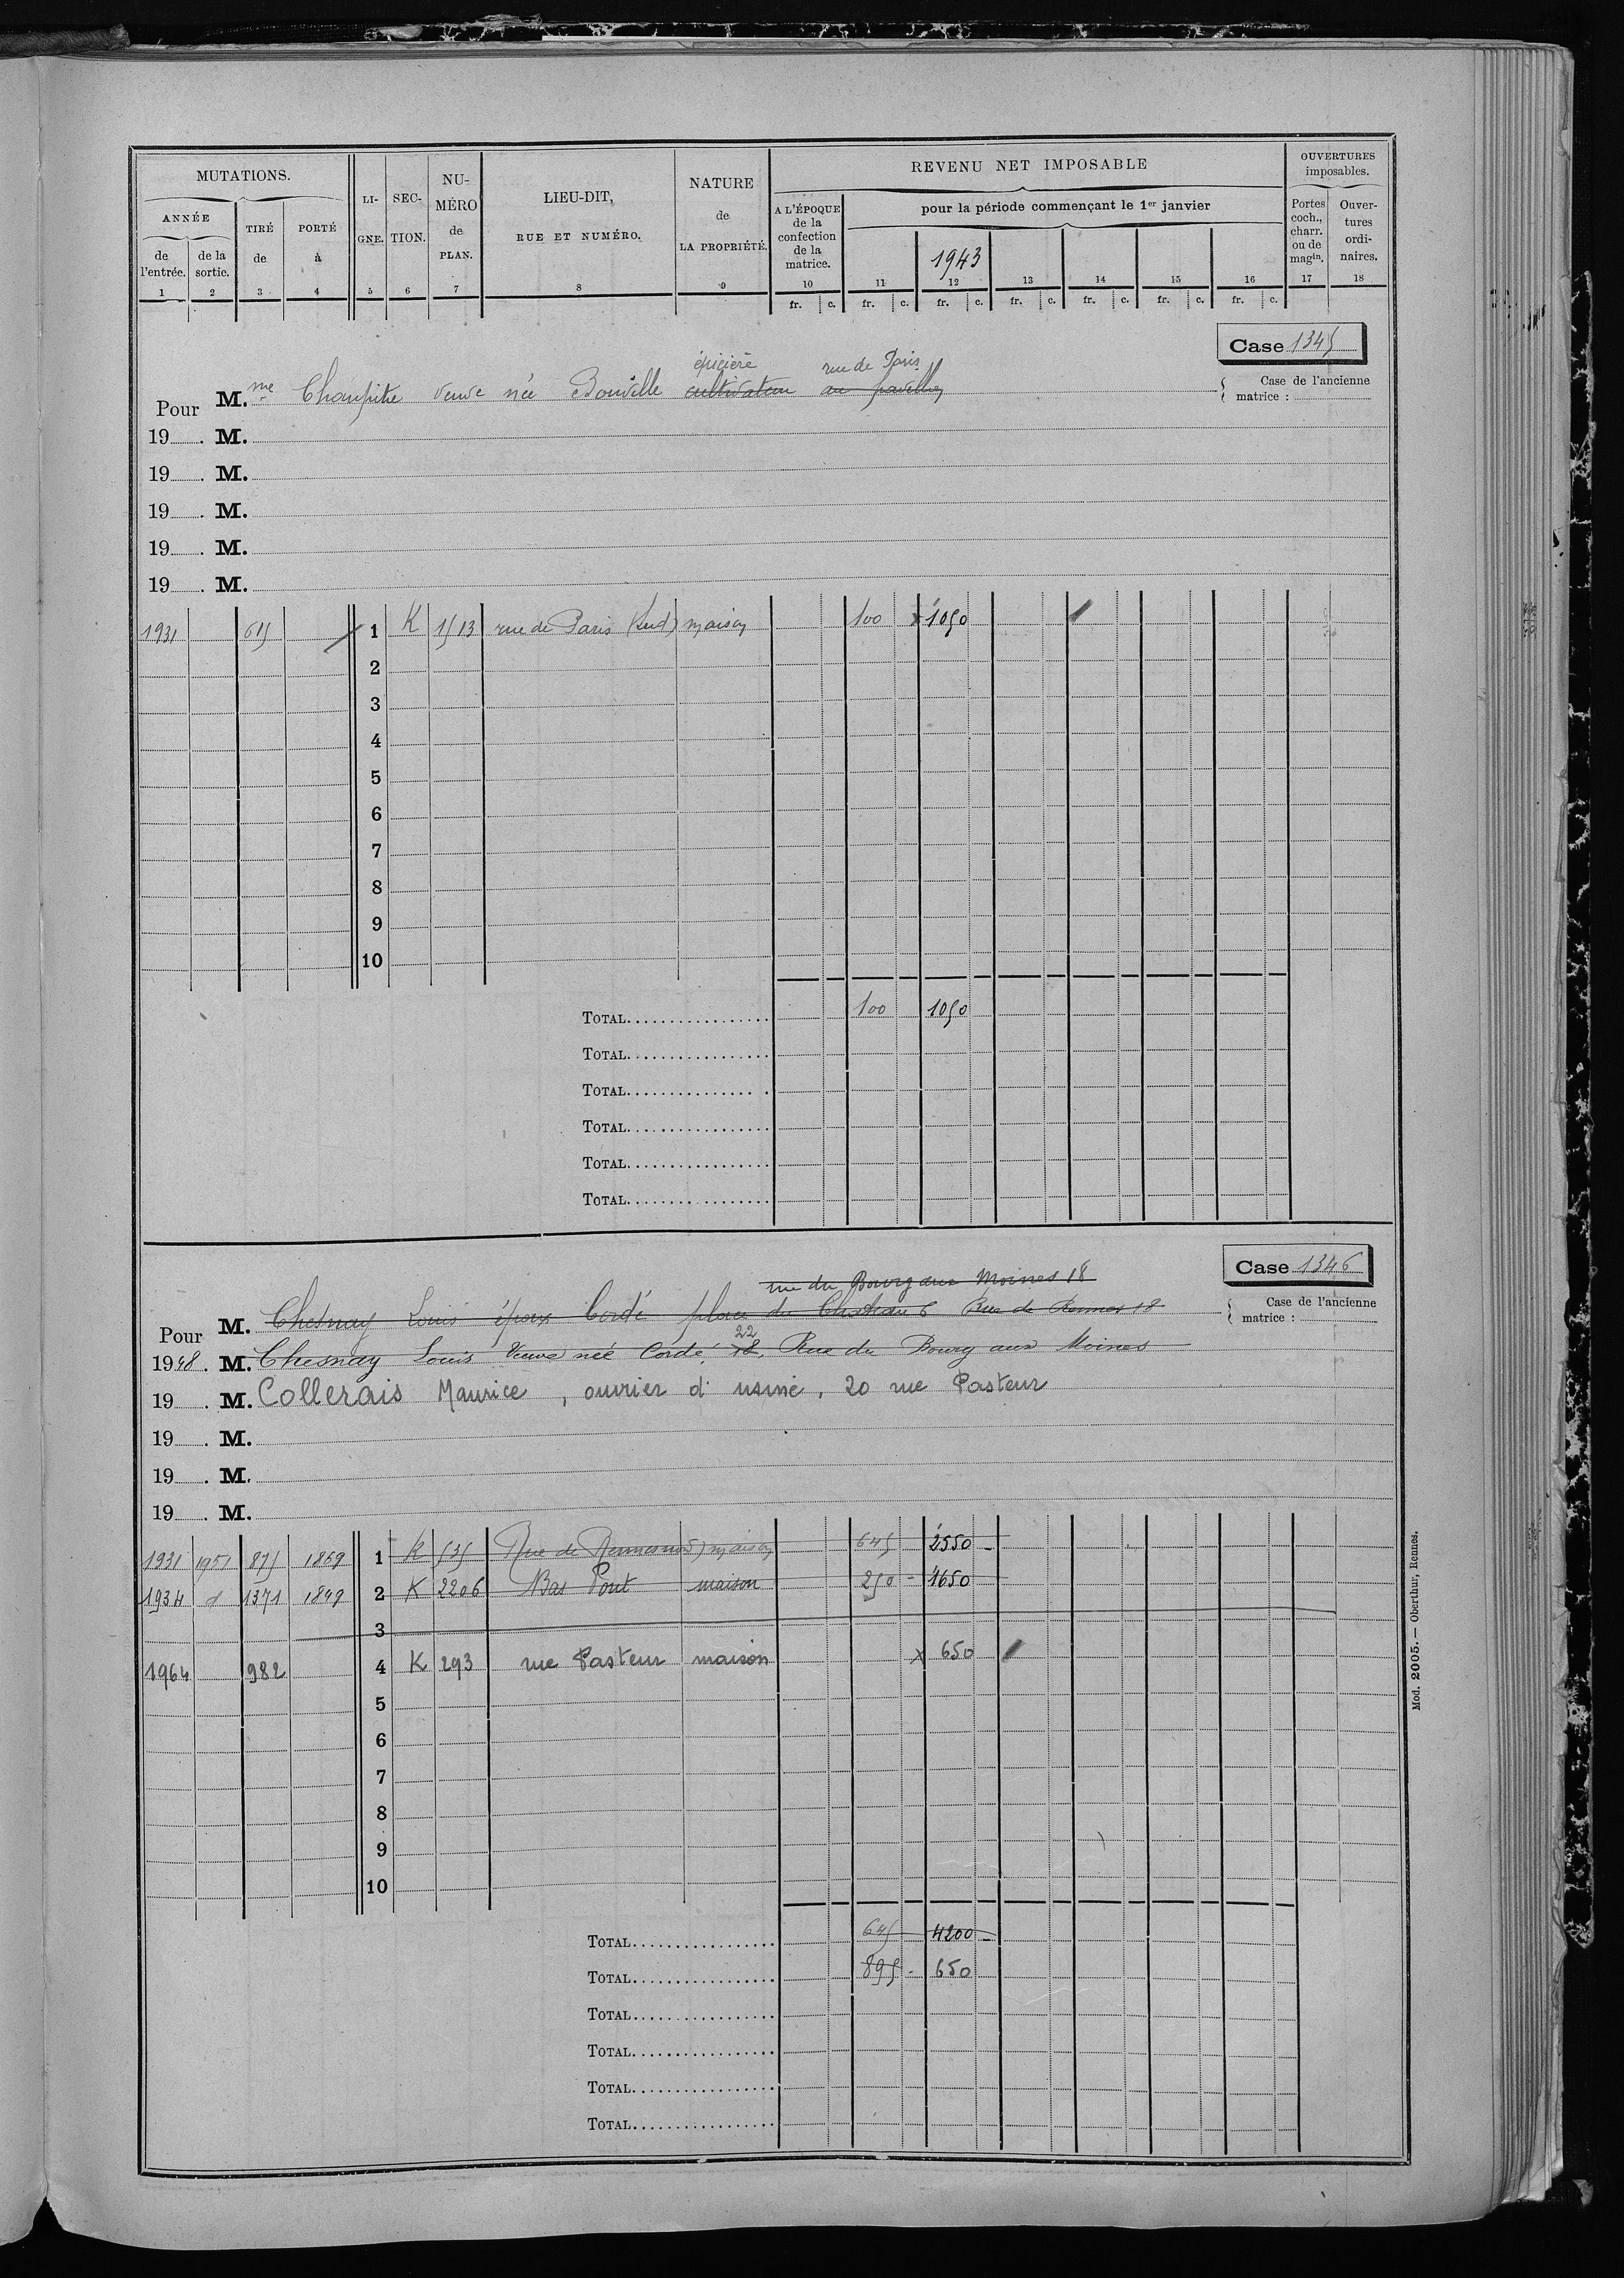 MUTATIONS.
ANNÉE
de l'entrée.
de la sortie.
TIRÉ de
PORTÉ à
LI-GNE.
SEC-TION.
NU-MÉRO de PLAN.
LIEU-DIT, RUE ET NUMÉRO.
NATURE de LA PROPRIÉTÉ.
REVENU NET IMPOSABLE
A L'ÉPOQUE de la confection de la matrice.
pour la période commençant le 1er janvier
1943
OUVERTURES imposables.
Portes coch., charr. ou de magin.
Ouver-tures ordi-naires.
1 2 3 4 5 6 7 8 9 10 11 12 13 14 15 16 17 18
fr. c. fr. c. fr. c. fr. c. fr. c. fr. c. fr. c.
Case 1345
Case de l'ancienne matrice :
épicière rue de Paris
Pour M.me veuve née cultivateur
19 . M.
19 . M.
19 . M.
19 . M.
19 . M.
1931 615 1 K 1513 rue de Paris (Sud) maison 100 x 1050
2
3
4
5
6
7
8
9
10
TOTAL 100 1050
TOTAL
TOTAL
TOTAL
TOTAL
TOTAL
Case 1346
Case de l'ancienne matrice :
rue du Bourg aux Moines 18
Pour M. Chesnay Louis époux Cordé place du Château 6 Rue de Rennes 18
22
1948. M. Chesnay Louis Veuve née Cordé, 18, Rue du Bourg aux Moines
19 . M. Collerais Maurice, ouvrier d'usine, 20 rue Pasteur
19 . M.
19 . M.
19 . M.
1931 1951 875 1869 1 K 535 Rue de Rennes nord) maison 645 2550
1934 d 1371 1849 2 K 2206 Bas Pont maison 250 1650
3
1964 982 4 K 293 rue Pasteur maison x 650
5
6
7
8
9
10
TOTAL 645 4200
TOTAL 895 650
TOTAL
TOTAL
TOTAL
TOTAL
Mod. 2005. — Oberthur, Rennes.